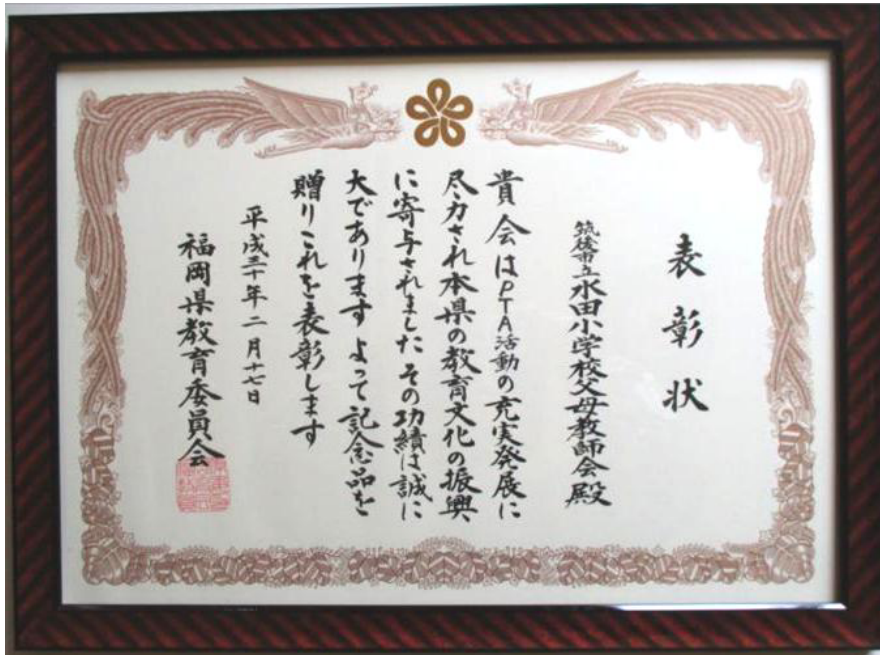 表彰状
筑後市立水田小学校父母教師会殿
貴会はPTA活動の充実発展に
尽力され本県の教育文化の振興
に寄与されました その功績は誠に
大であります よって記念品を
贈りこれを表彰します
平成三十年二月十七日
福岡県教育委員会